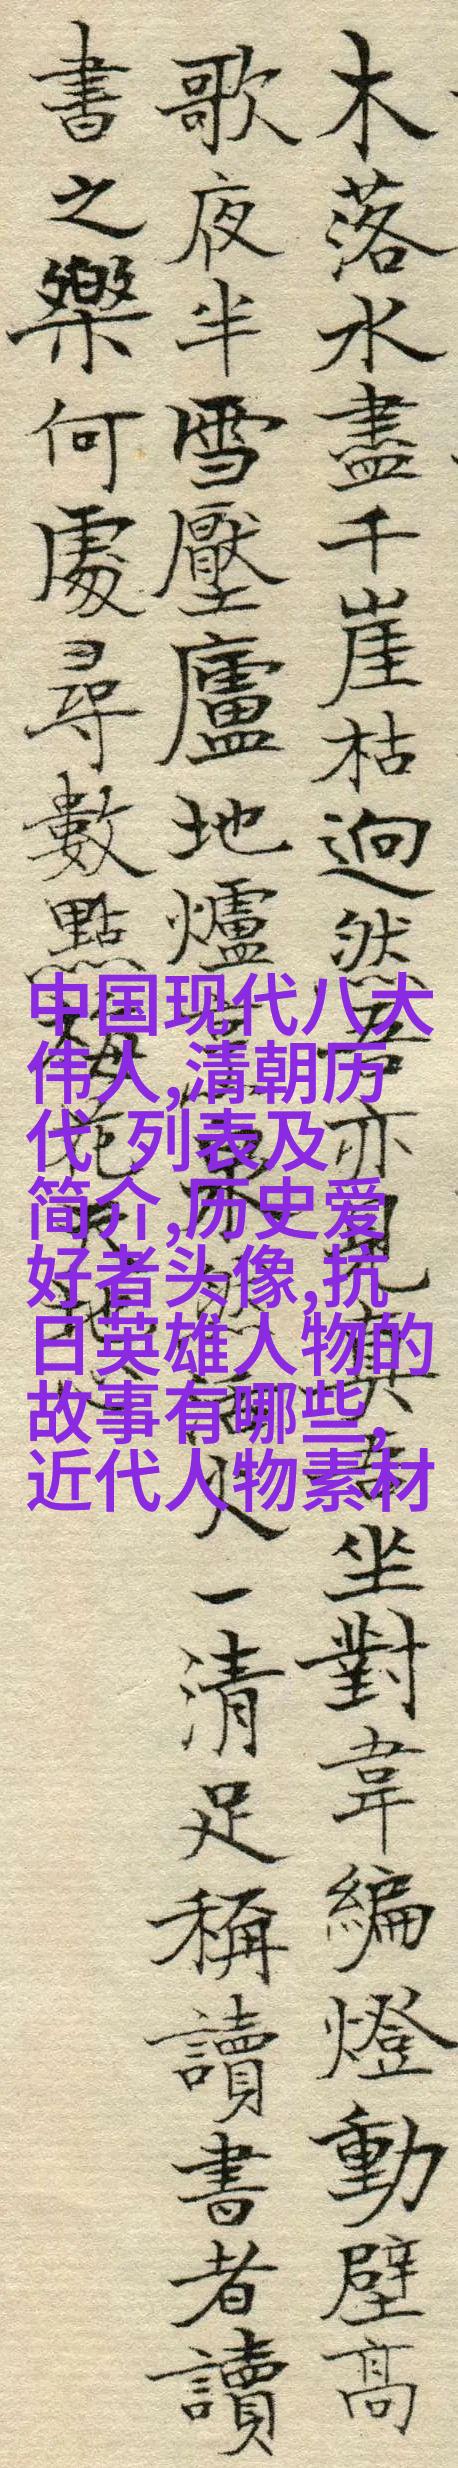 木落水盡千崖枯迥然吾亦見真吾坐對韋編燈動壁高
歌夜半雪壓廬地爐茶鼎然活火一清足稱讀書者讀
書之樂何處尋數點梅花天地心
中国现代八大
伟人,清朝历
代 列表及
简介,历史爱
好者头像,抗
日英雄人物的
故事有哪些,
近代人物素材